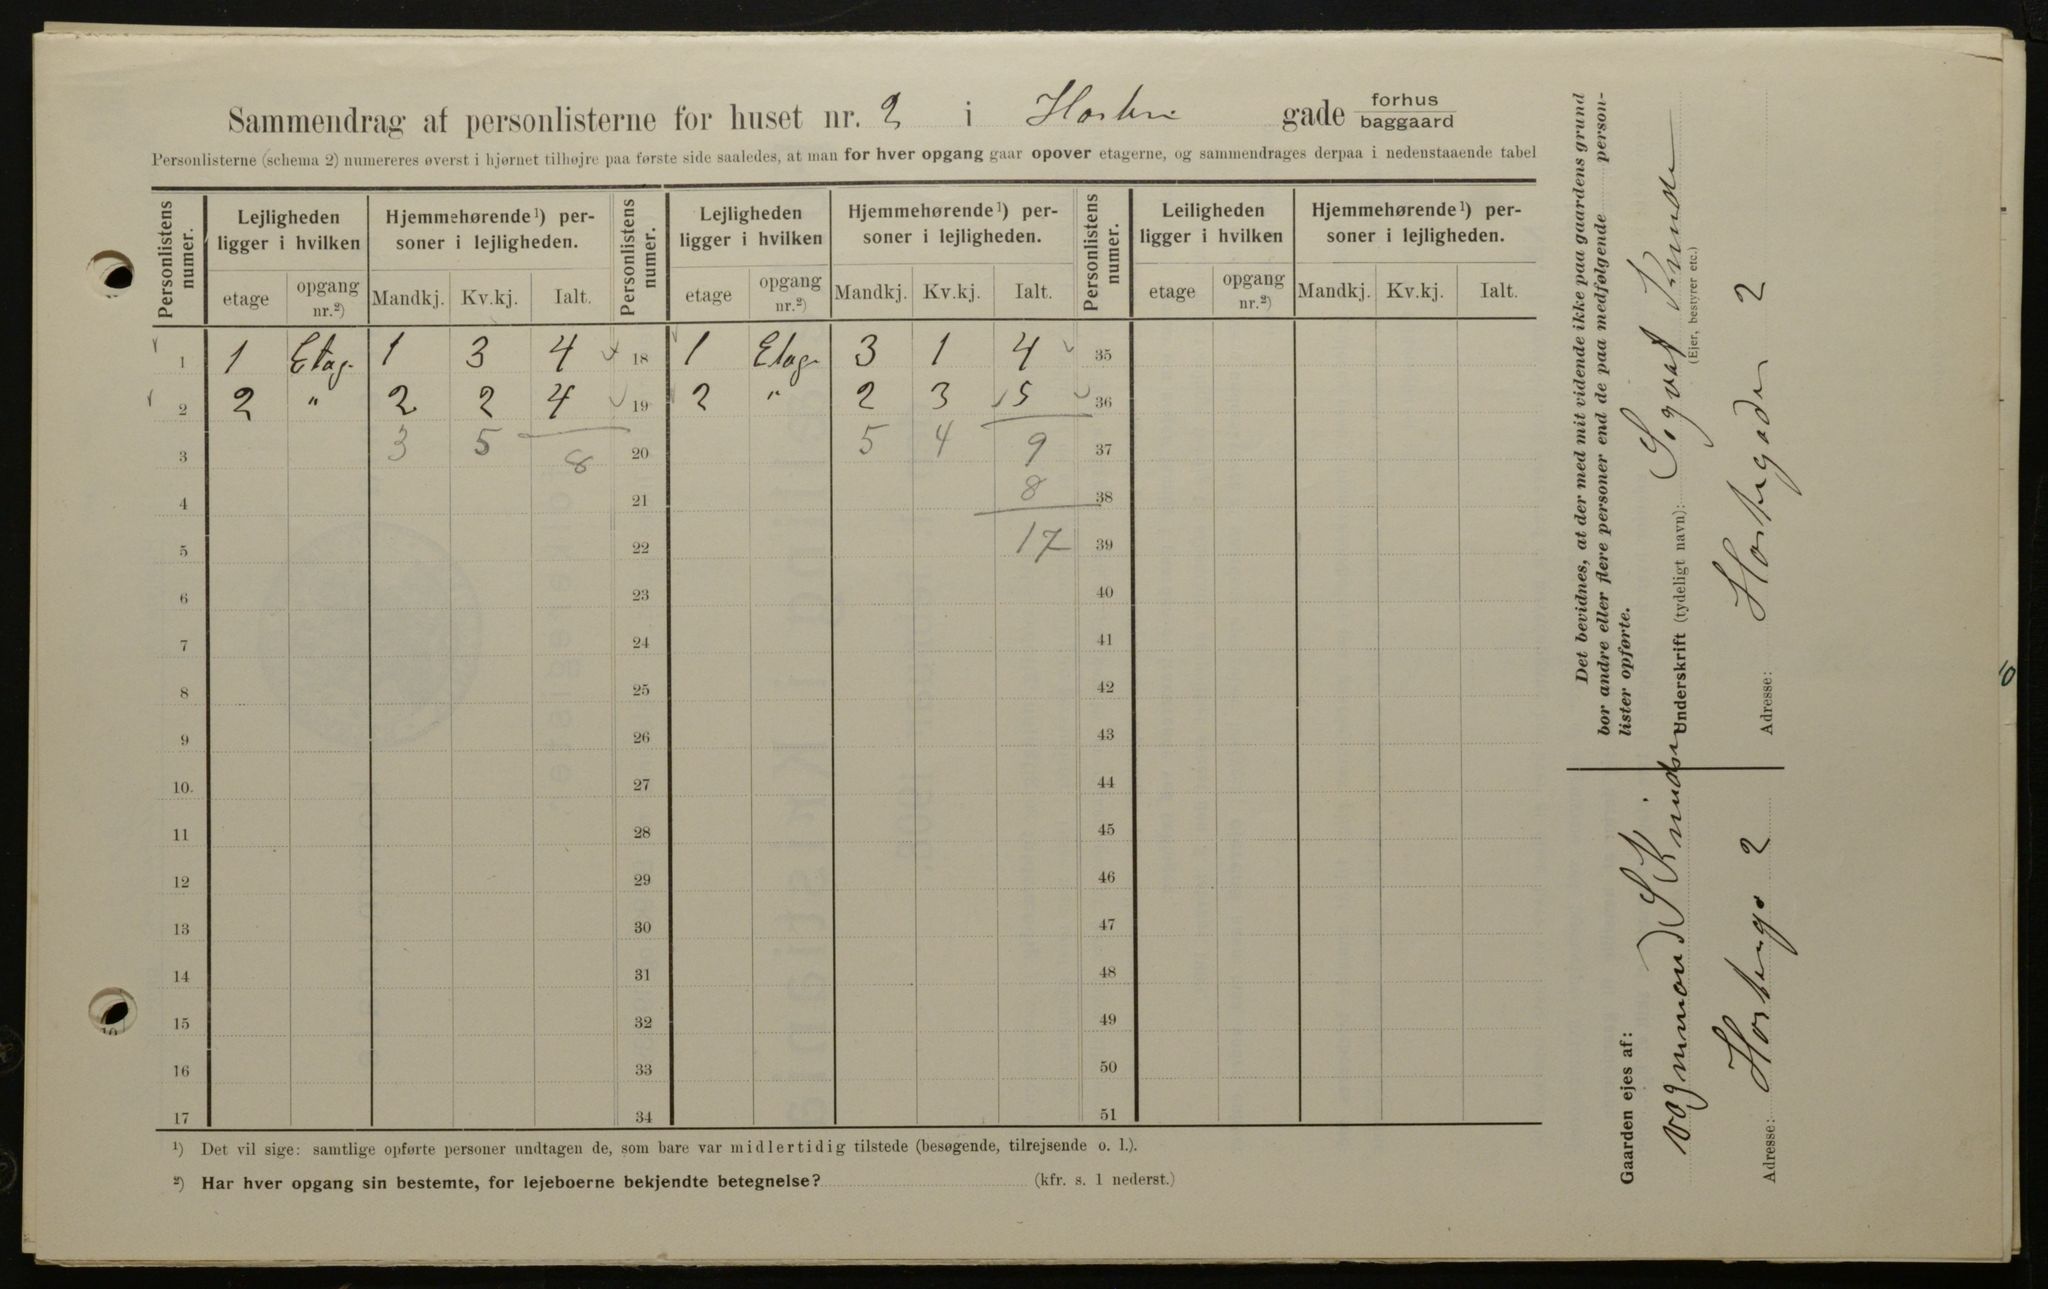 Sammendrag af personlisterne for huset nr. 2 i gade forhus
baggaard
Personlisterne (schema 2) numereres øverst i hjørnet tilhøjre paa første side saaledes, at man for hver opgang gaar opover etagerne, og sammendrages derpaa i nedenstaaende tabel
Personlistens numer. Lejligheden ligger i hvilken Hjemmehørende¹) personer i lejligheden. Personlistens numer. Lejligheden ligger i hvilken Hjemmehørende¹) personer i lejligheden. Personlistens numer. Leiligheden ligger i hvilken Hjemmehørende¹) personer i lejligheden.
etage opgang nr.²) Mandkj. Kv.kj. Ialt. etage opgang nr.²) Mandkj. Kv.kj. Ialt. etage opgang nr.²) Mandkj. Kv.kj. Ialt.
1 1 Etag. 1 3 4 18 1 Etag. 3 1 4 35
2 2 " 2 2 4 19 2 " 2 3 5 36
3 3 5 8 20 5 4 9 37
4 21 8 38
5 22 17 39
6 23 40
7 24 41
8 25 42
9 26 43
10. 27 44
11 28 45
12 29 46
13 30 47
14 31 48
15 32 49
16 33 50
17 34 51
¹) Det vil sige: samtlige opførte personer undtagen de, som bare var midlertidig tilstede (besøgende, tilrejsende o. l.).
²) Har hver opgang sin bestemte, for lejeboerne bekjendte betegnelse? (kfr. s. 1 nederst.)
Det bevidnes, at der med mit vidende ikke paa gaardens grund
bor andre eller flere personer end de paa medfølgende person-
lister opførte.
Underskrift (tydeligt navn):
(Ejer, bestyrer etc.)
Adresse: 2
Gaarden ejes af:
Adresse: 2